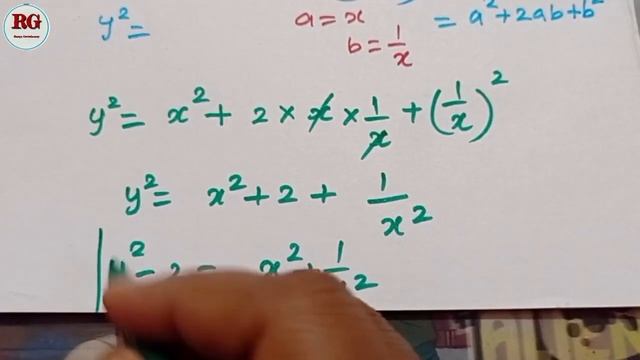 RG
y² =
a = x
= a² + 2ab + b²
b = 1/x
y² = x² + 2 × x × 1/x + (1/x)²
y² = x² + 2 + 1/x²
y² - 2 = x² + 1/x²